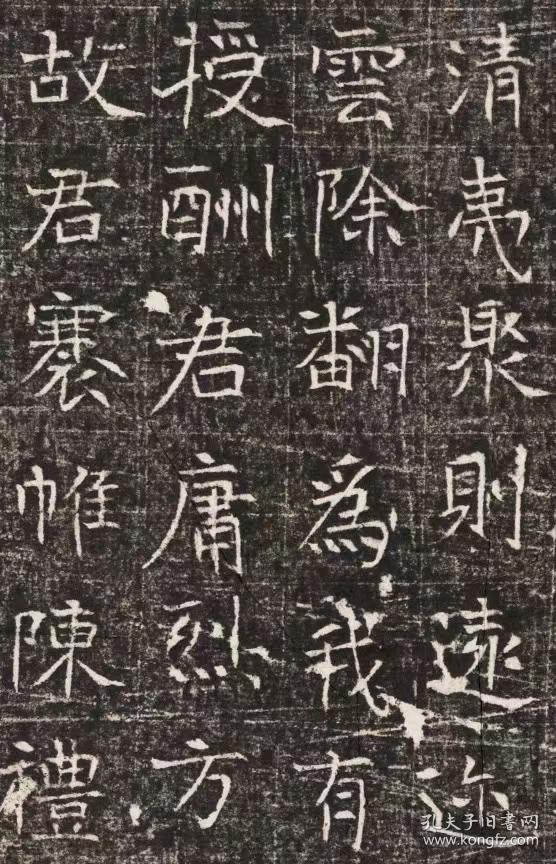 清聚則遠
雲除翻爲我有
授酬君庸烈方
故君褰帷陳禮
孔夫子旧书网
www.kongfz.com